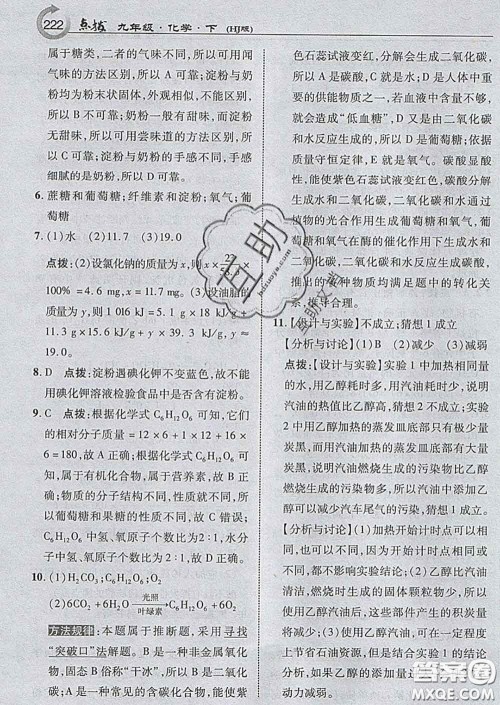 222 点拨 九年级·化学·下 (HJ版)
属于糖类，二者的气味不同，所以可用闻
气味的方法区别，所以A可靠；淀粉与奶
粉均为粉末状固体，外观相似，不能用观
察的方法区别，所以B不可靠；淀粉与奶
粉味道不同，奶粉一般有甜味，而淀粉
无甜味，所以可用尝味道的方法区别，所
以C可靠；淀粉与奶粉的手感不同，细腻
的是奶粉，所以D可靠。
6. 蔗糖和葡萄糖；纤维素和淀粉；氧气；葡
萄糖
7. (1)水 (2)11.7 (3)19.0
点拨：(2)设氯化钠的质量为x，则x×
100%=4.6 mg，x=11.7 mg。(3)设油脂的
质量为y，则1 016 kJ=y×39.3 kJ/g+
11.3 g×15.6 kJ/g+y×39.3 kJ/g，y≈
19.0。
8. D 点拨：淀粉遇碘化钾不变蓝色，故不能
用碘化钾溶液检验食品中是否含有淀粉。
9. C 点拨：根据化学式C₆H₁₂O₆可知，它
们的相对分子质量=12×6+1×12+16×
6=180，故A正确；根据化学式C₆H₁₂O₆可
知，属于有机化合物，属于营养素，故B正
确。物质的分子结构不同，性质不同，所
以葡萄糖和果糖的性质不同，故C错误；
C₆H₁₂O₆中氢、氧原子个数比为2∶1，水分
子中氢、氧原子个数比为2∶1，故D正确。
10. (1)H₂CO₃；C₆H₁₂O₆；O₂
(2)6CO₂+6H₂O 光照 叶绿素 C₆H₁₂O₆+6O₂
方法规律：本题属于推断题，采用寻找
“突破口”法解题。B是一种非金属氧化
物，固态B俗称“干冰”，所以B是二氧化
碳；A是一种常见的含碳化合物，能使紫
色石蕊试液变红，分解会生成二氧化碳，
所以A是碳酸，C就是水；D是人体中重
要的供能物质之一，若血液中含量不够，
就会造成“低血糖”，D又是由二氧化碳
和水反应生成的，所以D是葡萄糖；依据
质量守恒定律，E就是氧气。碳酸显酸
性，能使紫色石蕊试液变红色，碳酸分解
生成水和二氧化碳，二氧化碳和水通过
植物的光合作用生成葡萄糖和氧气，葡
萄糖和氧气在酶的催化作用下生成二氧
化碳和水，二氧化碳和水反应生成碳酸，
推出的各种物质均满足题中的转化关
系，推导合理。
11. 【设计与实验】不成立；猜想1成立
【分析与讨论】(1)B (2)减少 (3)减弱
点拨：【设计与实验】实验1中加热相同
质量的水，用乙醇耗时较多，用汽油耗时
较少，说明乙醇热值比汽油热值低，汽油
热值比乙醇高，故猜想2不成立。实验
2中用乙醇加热的蒸发皿底部没有大量
炭黑，而用汽油加热的蒸发皿底部有大量
炭黑，说明汽油燃烧生成的污染物比乙
醇燃烧生成的污染物多，所以汽油中添加乙
醇可以减少汽车尾气污染，故猜想1成立。
【分析与讨论】(1)加热开始计时点可以
相同也可以不同，原因是开始计时点不
影响实验结论。(2)由实验结论可知，乙
醇汽油燃烧生成的固体颗粒物少，所以
使用乙醇汽油后，一方面，会减少进气管
等部件产生的积炭量。(3)乙醇汽油理论
上节省石油资源，但是由于乙醇热值比汽油
低，如果乙醇的添加量过大，会使汽车的
动力减弱。
互助
作业精灵
答案圈
MXQE.COM